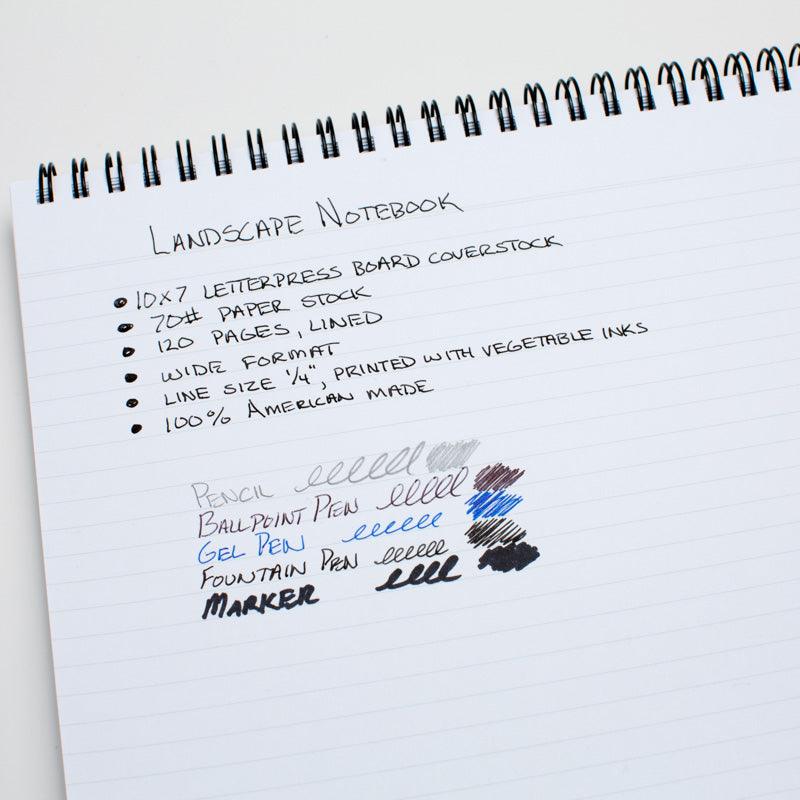 LANDSCAPE NOTEBOOK
• 10x7 LETTERPRESS BOARD COVERSTOCK
• 70# PAPER STOCK
• 120 PAGES, LINED
• WIDE FORMAT
• LINE SIZE 1/4", PRINTED WITH VEGETABLE INKS
• 100% AMERICAN MADE
PENCIL
BALLPOINT PEN
GEL PEN
FOUNTAIN PEN
MARKER